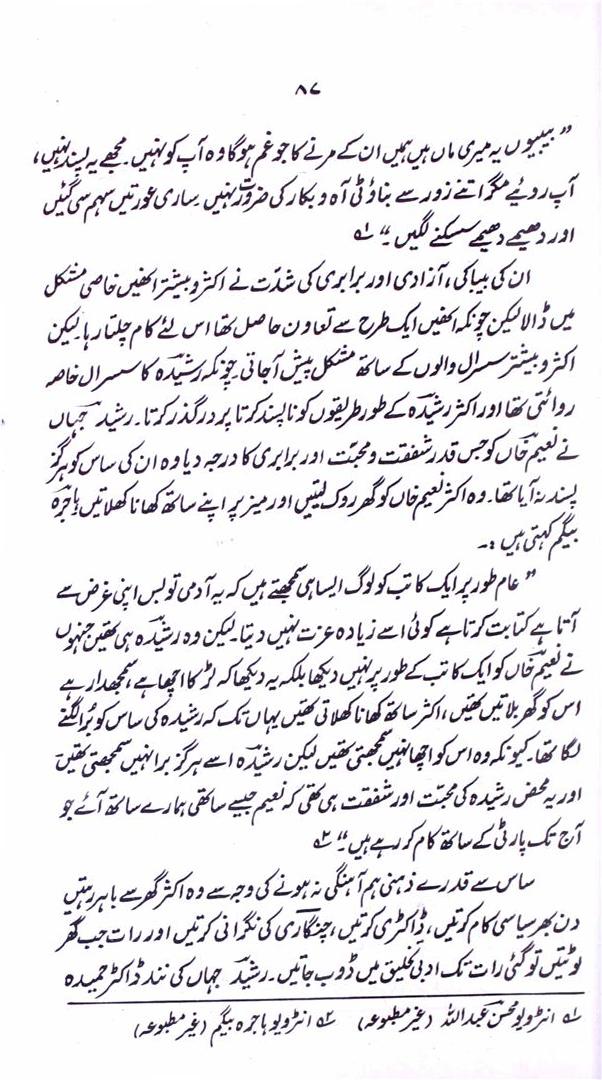 ۸۷
”بیبیوں یہ میری ماں ہیں ہمیں ان کے مرنے کا جو غم ہوگا وہ آپ کو نہیں۔ مجھے یہ پسند نہیں،
آپ روئیے مگر اتنے زور سے بناوٹی آہ و بکار کی ضرورت نہیں۔ ساری عورتیں سہم سی گئیں
اور دھیمے دھیمے سسکنے لگیں۔“ ؎۱
ان کی بیباکی، آزادی اور برابری کی شدّت نے اکثر و بیشتر انھیں خاصی مشکل
میں ڈالا لیکن چونکہ انھیں ایک طرح سے تعاون حاصل تھا اس لئے کام چلتا رہا۔ لیکن
اکثر و بیشتر سسرال والوں کے ساتھ مشکل پیش آجاتی۔ چونکہ رشیدہ کا سسرال خاصہ
روائتی تھا اور اکثر رشیدہ کے طور طریقوں کو ناپسند کرتا پر درگذر کرتا۔ رشید جہاں
نے نعیم خاں کو جس قدر شفقت و محبّت اور برابری کا درجہ دیا وہ ان کی ساس کو ہرگز
پسند نہ آیا تھا۔ وہ اکثر نعیم خاں کو گھر روک لیتیں اور میز پر اپنے ساتھ کھانا کھلاتیں۔ ہاجرہ
بیگم کہتی ہیں :۔
”عام طور پر ایک کاتب کو لوگ ایسا ہی سمجھتے ہیں کہ یہ آدمی تو بس اپنی غرض سے
آتا ہے کتابت کرتا ہے کوئی اسے زیادہ عزت نہیں دیتا۔ لیکن وہ رشیدہ ہی تھیں جنہوں
نے نعیم خاں کو ایک کاتب کے طور پر نہیں دیکھا بلکہ یہ دیکھا کہ لڑکا اچھا ہے، سمجھدار ہے
اس کو گھر بلاتیں تھیں، اکثر ساتھ کھانا کھلاتی تھیں یہاں تک کہ رشیدہ کی ساس کو بُرا لگنے
لگا تھا۔ کیونکہ وہ اس کو اچھا نہیں سمجھتی تھیں لیکن رشیدہ اسے ہرگز برا نہیں سمجھتی تھیں
اور یہ محض رشیدہ کی محبّت اور شفقت ہی تھی کہ نعیم جیسے ساتھی ہمارے ساتھ آئے جو
آج تک پارٹی کے ساتھ کام کر رہے ہیں۔“ ؎۲
ساس سے قدرے ذہنی ہم آہنگی نہ ہونے کی وجہ سے وہ اکثر گھر سے باہر رہتیں
دن بھر سیاسی کام کرتیں، ڈاکٹری کرتیں، چنگاری کی نگرانی کرتیں اور رات جب گھر
لوٹتیں تو گئی رات تک ادبی تخلیق میں ڈوب جاتیں۔ رشید جہاں کی نند ڈاکٹر حمیدہ
؎۱ انٹرویو محسن عبداللہ (غیر مطبوعہ) ؎۲ انٹرویو ہاجرہ بیگم (غیر مطبوعہ)